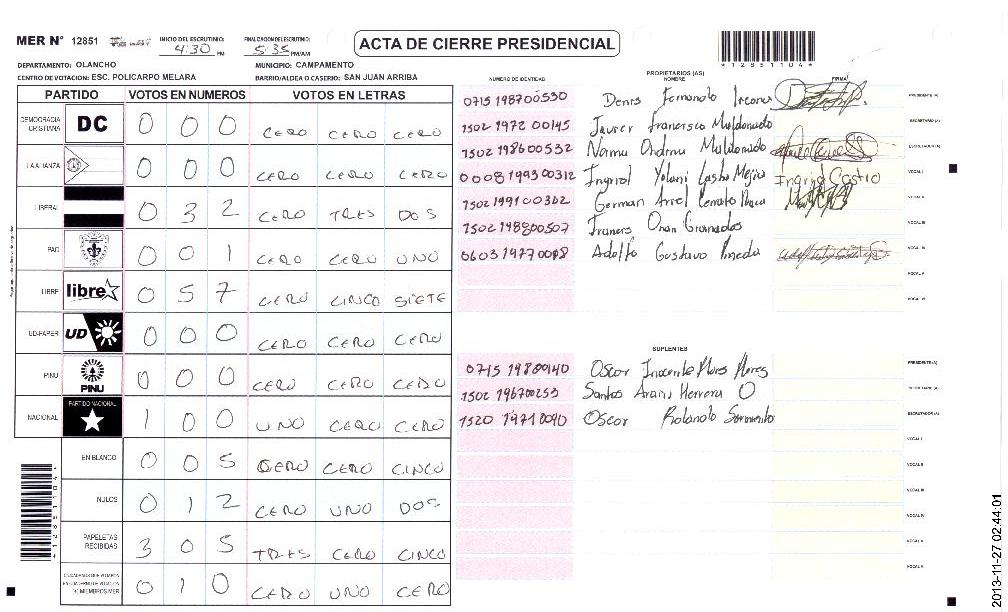 MER N° 12851 INICIO DEL ESCRUTINIO 4:30 PM FINALIZACION ESCRUTINIO 5:35 PM/AM
ACTA DE CIERRE PRESIDENCIAL
*12851104*
DEPARTAMENTO: OLANCHO MUNICIPIO: CAMPAMENTO
CENTRO DE VOTACION: ESC. POLICARPO MELARA BARRIO/ALDEA O CASERIO: SAN JUAN ARRIBA
PARTIDO VOTOS EN NUMEROS VOTOS EN LETRAS
DEMOCRACIA CRISTIANA DC 0 0 0 CERO CERO CERO
LA ALIANZA 0 0 0 CERO CERO CERO
LIBERAL 0 3 2 CERO TRES DOS
PAC 0 0 1 CERO CERO UNO
LIBRE libre 0 5 7 CERO CINCO SIETE
UD-FAPER UD 0 0 0 CERO CERO CERO
PINU PINU 0 0 0 CERO CERO CERO
NACIONAL PARTIDO NACIONAL 1 0 0 UNO CERO CERO
EN BLANCO 0 0 5 CERO CERO CINCO
NULOS 0 1 2 CERO UNO DOS
PAPELETAS RECIBIDAS 3 0 5 TRES CERO CINCO
0 1 0 CERO UNO CERO
*12851104*
PROPIETARIOS (AS)
NUMERO DE IDENTIDAD NOMBRE FIRMA
0715 198700530 Denis Fernando PRESIDENTE(A)
1502 1972 00145 Javier Francisco Maldonado SECRETARIO(A)
1502 198600532 Maldonado ESCRUTADOR(A)
0008 199300312 Ingrid Yolani Castro Mejia Ingrid Castro VOCAL I
1502 199100362 German VOCAL II
1502 198800507 VOCAL III
Adolfo Gustavo Pineda VOCAL IV
VOCAL V
VOCAL VI
SUPLENTES
Oscar Inocente Flores Flores PRESIDENTE(A)
1502 196700253 Santos Herrera O SECRETARIO(A)
Oscar Rolando Sarmiento ESCRUTADOR(A)
VOCAL I
VOCAL II
VOCAL III
VOCAL IV
VOCAL V
VOCAL VI
2013-11-27 02:44:01